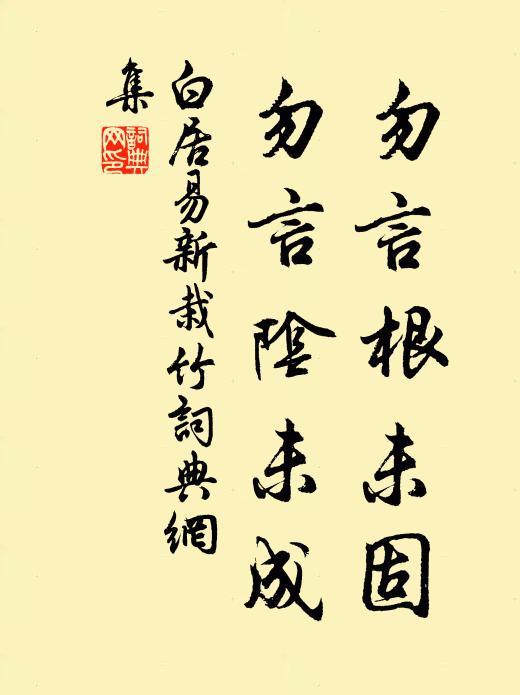 勿言根未固
勿言陰未成
白居易新栽竹詞典網
集
詞典
网印